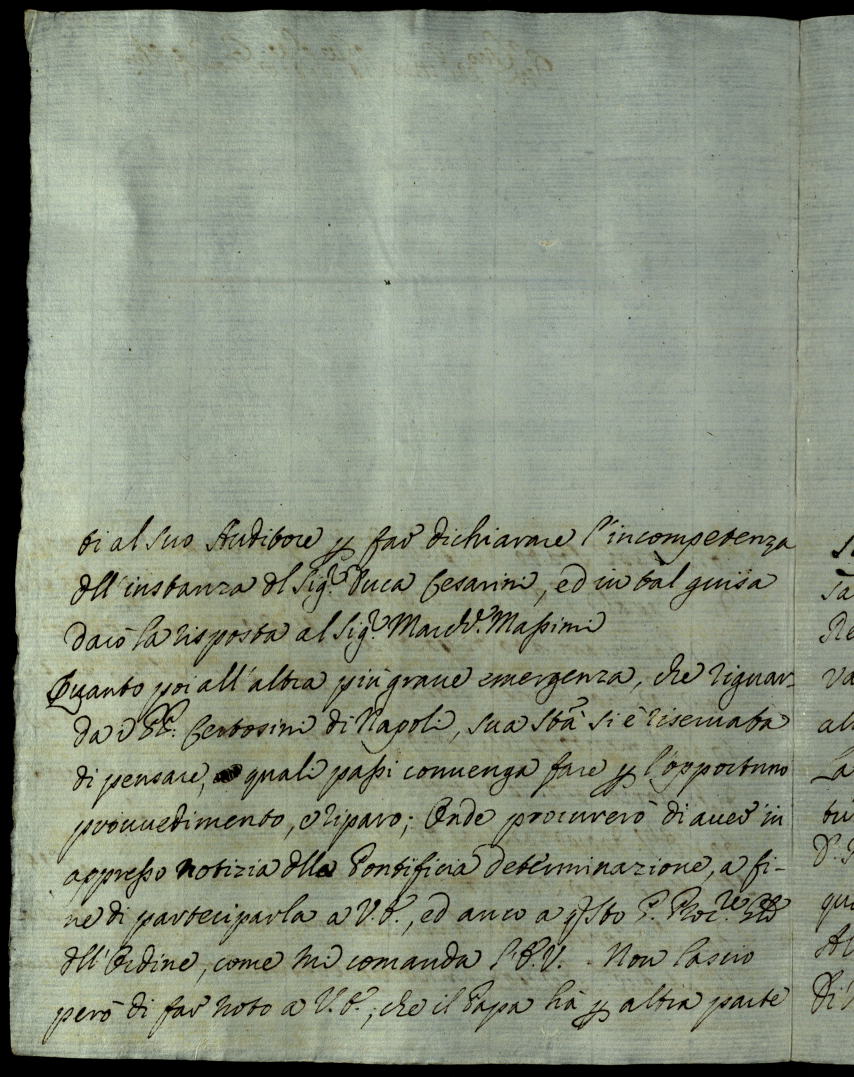 ti al suo Auditore p far dichiarare l'incompetenza
dll'instanza dl Sig.r Duca Cesarini, ed in tal guisa
darò la risposta al Sig.r March.e Massimi
Quanto poi all'altra più graue emergenza, che riguar-
da i PP. Certosini di Napoli, sua Stà si è riseruata
di pensare, quali passi conuenga fare p l'opportuno
prouuedimento, e riparo; Onde procurerò di auer in
appresso notizia dlla Pontificia determinazione, a fi-
ne di parteciparla a V.E., ed anco a qsto P. Proc.re Gle
dll'Ordine, come mi comanda l'E.V. Non lascio
però di far noto a V.E., che il Papa hà p altra parte